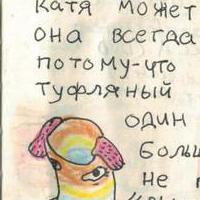 Катя может
она всегда
потому-что
туфляный
один
больш
не п